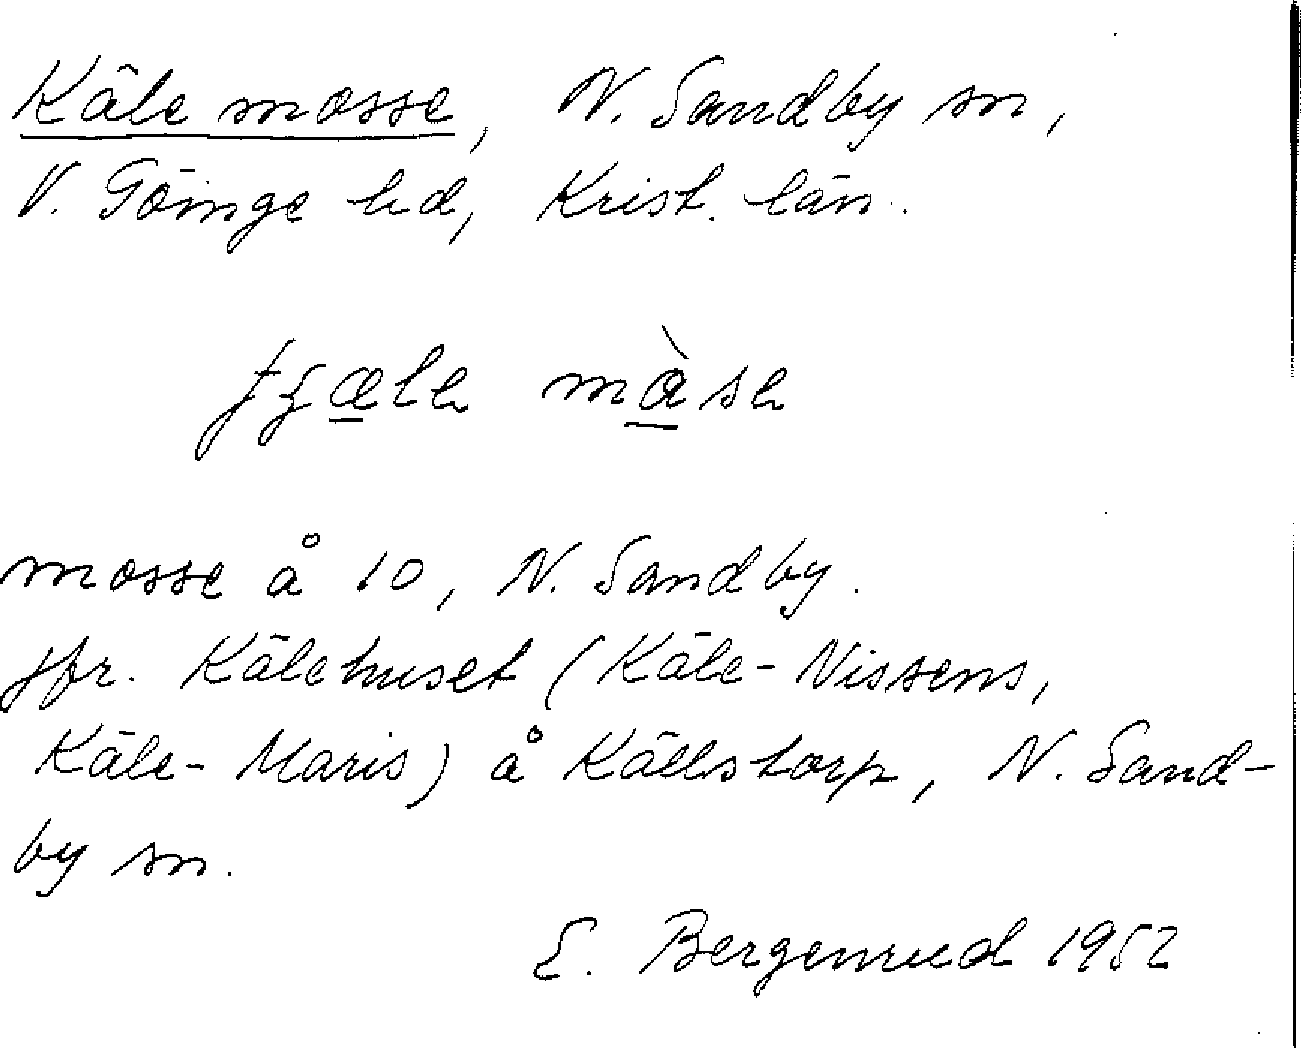 Käle mosse, N. Sandby sn,
V. Göinge hd, Krist. län.
mosse å 10, N. Sandby.
jfr. Kälehuset (Käle-Nissens,
Käle-Maris) å Källstorp, N. Sand-
by sn.
E. Bergenrud 1952